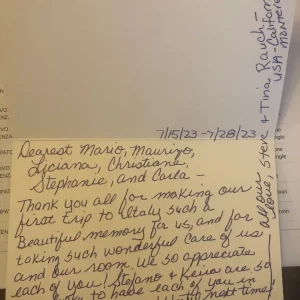 7/15/23 - 7/28/23
Dearest Mario, Maurizio,
Liciana, Christiane,
Stephanie, and Carla -
Thank you all for making our
first trip to Italy such a
Beautiful memory for us, and for
taking such wonderful care of us
and our room. We so appreciate
each of you! Stefano + Keiia are so
to have each of you in
next time!
all our
love, Steve + Tina Rauch -
USA - California